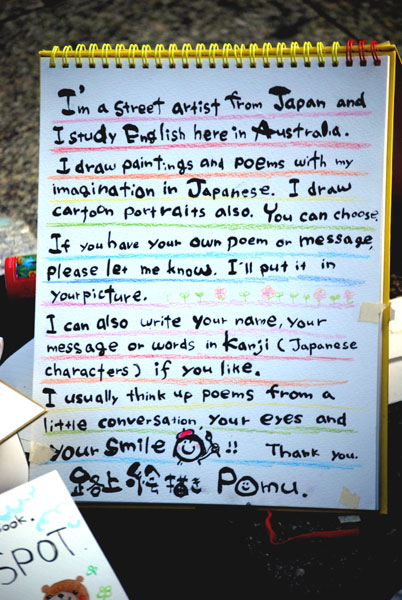 I'm a street artist from Japan and
I study English here in Australia.
I draw paintings and poems with my
imagination in Japanese. I draw
cartoon portraits also. You can choose.
If you have your own poem or message,
please let me know. I'll put it in
your picture.
I can also write your name, your
message or words in kanji (Japanese
characters) if you like.
I usually think up poems from a
little conversation, your eyes and
your smile !! Thank you.
路上 描き Pomu.
ook.
SPOT.